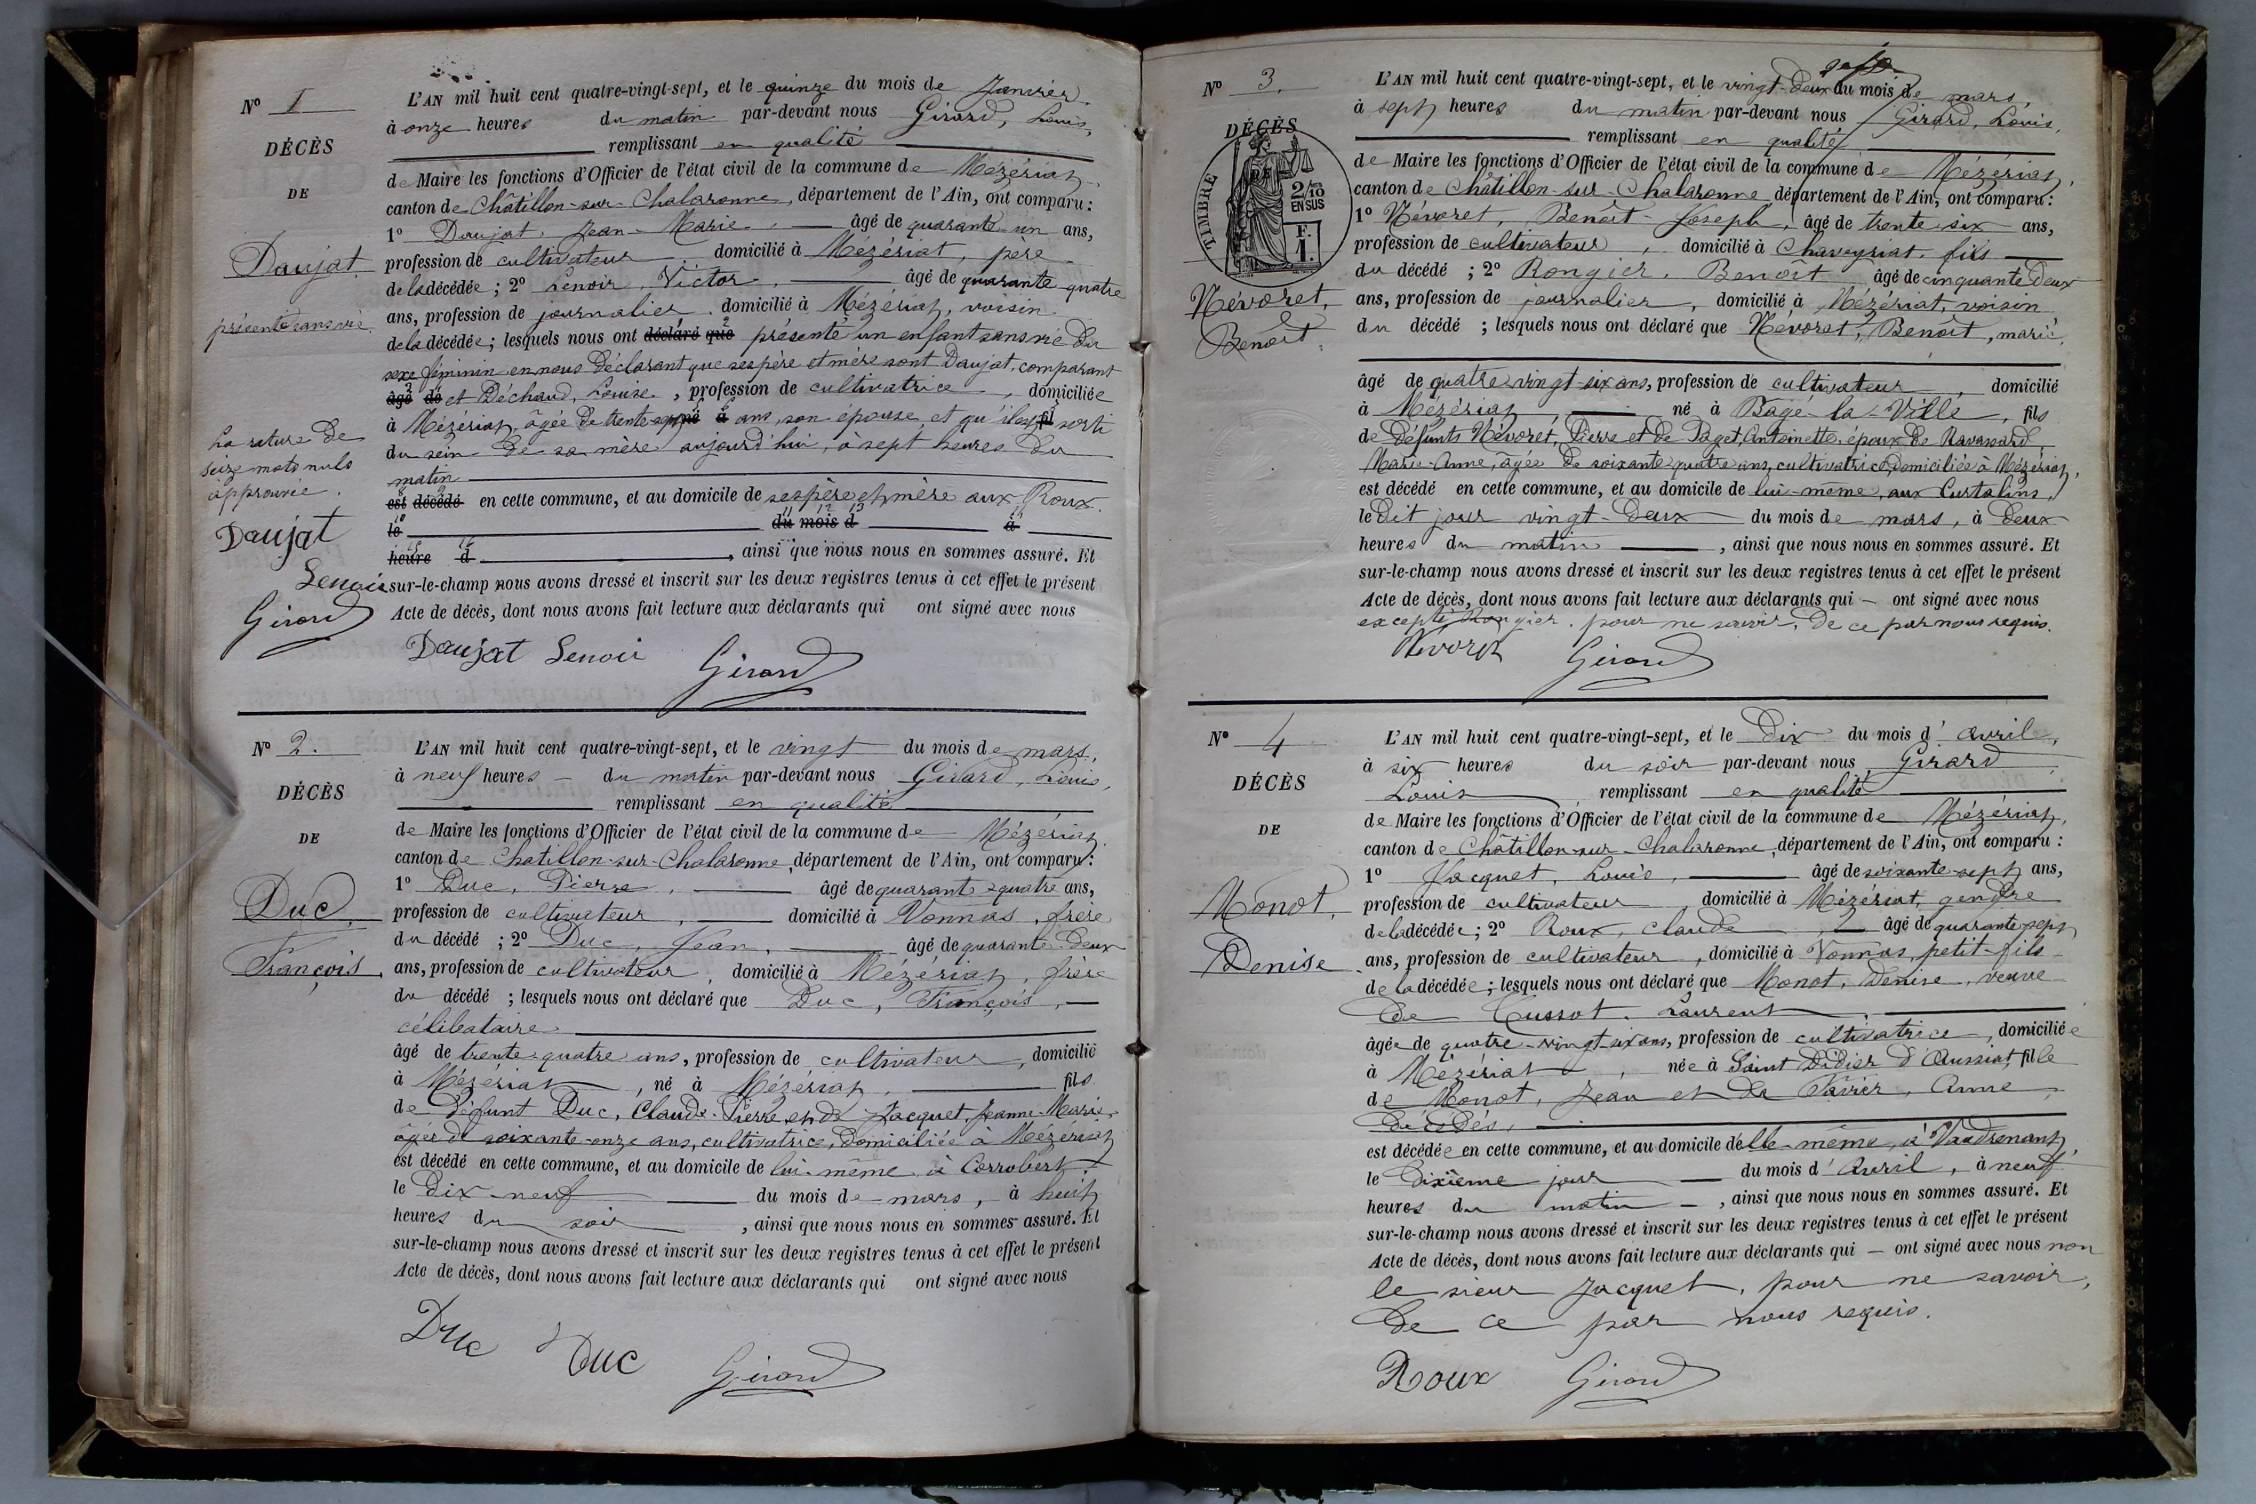 Nº 1
DÉCÈS
DE
Daujat
présenté sans vie.
La rature de
seize mots nuls
approuvée.
Daujat
Lenoir
Girard
L'AN mil huit cent quatre-vingt-sept, et le quinze du mois de Janvier,
à onze heures du matin par-devant nous Girard, Louis,
remplissant en qualité
de Maire les fonctions d'Officier de l'état civil de la commune de Mézériat,
canton de Châtillon-sur-Chalaronne, département de l'Ain, ont comparu :
1º Daujat, Jean-Marie, âgé de quarante-un ans,
profession de cultivateur domicilié à Mézériat, père
de la décédée ; 2º Lenoir, Victor, âgé de quarante-quatre
ans, profession de journalier, domicilié à Mézériat, voisin
de la décédée ; lesquels nous ont déclaré que présenté un enfant sans vie du
sexe féminin en nous déclarant que ses père et mère sont Daujat, comparant
âgé de et Déchaud, Louise, profession de cultivatrice, domiciliée
à Mézériat, âgée de trente- né à ans, son épouse, et qu'il est fil sorti
du sein de sa mère aujourd'hui, à sept heures du
matin
est décédé en cette commune, et au domicile de ses père et mère aux Roux.
le du mois d à
heure d , ainsi que nous nous en sommes assuré. Et
sur-le-champ nous avons dressé et inscrit sur les deux registres tenus à cet effet le présent
Acte de décès, dont nous avons fait lecture aux déclarants qui ont signé avec nous
Daujat Lenoir Girard
Nº 2.
DÉCÈS
DE
Duc,
François,
L'AN mil huit cent quatre-vingt-sept, et le vingt du mois de mars,
à neuf heures du matin par-devant nous Girard, Louis,
remplissant en qualité
de Maire les fonctions d'Officier de l'état civil de la commune de Mézériat,
canton de Chatillon-sur-Chalaronne, département de l'Ain, ont comparu :
1º Duc, Pierre, âgé de quarante-quatre ans,
profession de cultivateur, domicilié à Vonnas, frère
du décédé ; 2º Duc, Jean, âgé de quarante-deux
ans, profession de cultivateur, domicilié à Mézériat, frère
du décédé ; lesquels nous ont déclaré que Duc, François,
célibataire
âgé de trente-quatre ans, profession de cultivateur, domicilié
à Mézériat, né à Mézériat, fils
de défunt Duc, Claude-Pierre et de Jacquet, Jeanne-Marie,
âgée de soixante-onze ans, cultivatrice, domiciliée à Mézériat
est décédé en cette commune, et au domicile de lui-même, à Corrobert,
le dix-neuf du mois de mars, à huit
heures du soir, ainsi que nous nous en sommes assuré. Et
sur-le-champ nous avons dressé et inscrit sur les deux registres tenus à cet effet le présent
Acte de décès, dont nous avons fait lecture aux déclarants qui ont signé avec nous
Duc Duc Girard
Nº 3.
DÉCÈS
DE
TIMBRE
2/10
EN SUS
F.
1.
Névoret,
Benoît.
L'AN mil huit cent quatre-vingt-sept, et le vingt-deux du mois de mars,
à sept heures du matin par-devant nous Girard, Louis,
remplissant en qualité
de Maire les fonctions d'Officier de l'état civil de la commune de Mézériat,
canton de Châtillon-sur-Chalaronne, département de l'Ain, ont comparu :
1º Névoret, Benoît-Joseph, âgé de trente-six ans,
profession de cultivateur, domicilié à Chaveyriat, fils
du décédé ; 2º Rongier, Benoît âgé de cinquante-deux
ans, profession de journalier, domicilié à Mézériat, voisin
du décédé ; lesquels nous ont déclaré que Névoret, Benoît, marié,
âgé de quatre-vingt-six ans, profession de cultivateur, domicilié
à Mézériat, né à Bagé-la-Ville, fils
de défunts Névoret, Pierre et de Paget, Antoinette, époux de
Marie-Anne, âgée de soixante-quatre ans, cultivatrice, domiciliée à Mézériat,
est décédé en cette commune, et au domicile de lui-même, aux Curtalins,
le dit jour vingt-deux du mois de mars, à deux
heures du matin, ainsi que nous nous en sommes assuré. Et
sur-le-champ nous avons dressé et inscrit sur les deux registres tenus à cet effet le présent
Acte de décès, dont nous avons fait lecture aux déclarants qui ont signé avec nous
excepté Rongier, pour ne savoir, de ce par nous requis.
Nevoret Girard
Nº 4
DÉCÈS
DE
Monot,
Denise
L'AN mil huit cent quatre-vingt-sept, et le dix du mois d'avril,
à six heures du soir par-devant nous Girard
Louis remplissant en qualité
de Maire les fonctions d'Officier de l'état civil de la commune de Mézériat,
canton de Châtillon-sur-Chalaronne, département de l'Ain, ont comparu :
1º Jacquet, Louis, âgé de soixante-sept ans,
profession de cultivateur, domicilié à Mézériat, gendre
de la décédée ; 2º Roux, Claude, âgé de quarante-sept
ans, profession de cultivateur, domicilié à Vonnas, petit-fils
de la décédée ; lesquels nous ont déclaré que Monot, Denise, veuve
de Cussot, Laurent,
âgée de quatre-vingt-six ans, profession de cultivatrice, domiciliée
à Mézériat, née à Saint Didier d'Aussiat, fille
de Monot, Jean et de Tavier, Anne,
décédés,
est décédée en cette commune, et au domicile d'elle-même, à Vaudrenant,
le dixième jour du mois d'avril, à neuf
heures du matin, ainsi que nous nous en sommes assuré. Et
sur-le-champ nous avons dressé et inscrit sur les deux registres tenus à cet effet le présent
Acte de décès, dont nous avons fait lecture aux déclarants qui ont signé avec nous non
le sieur Jacquet, pour ne savoir,
de ce par nous requis.
Roux Girard